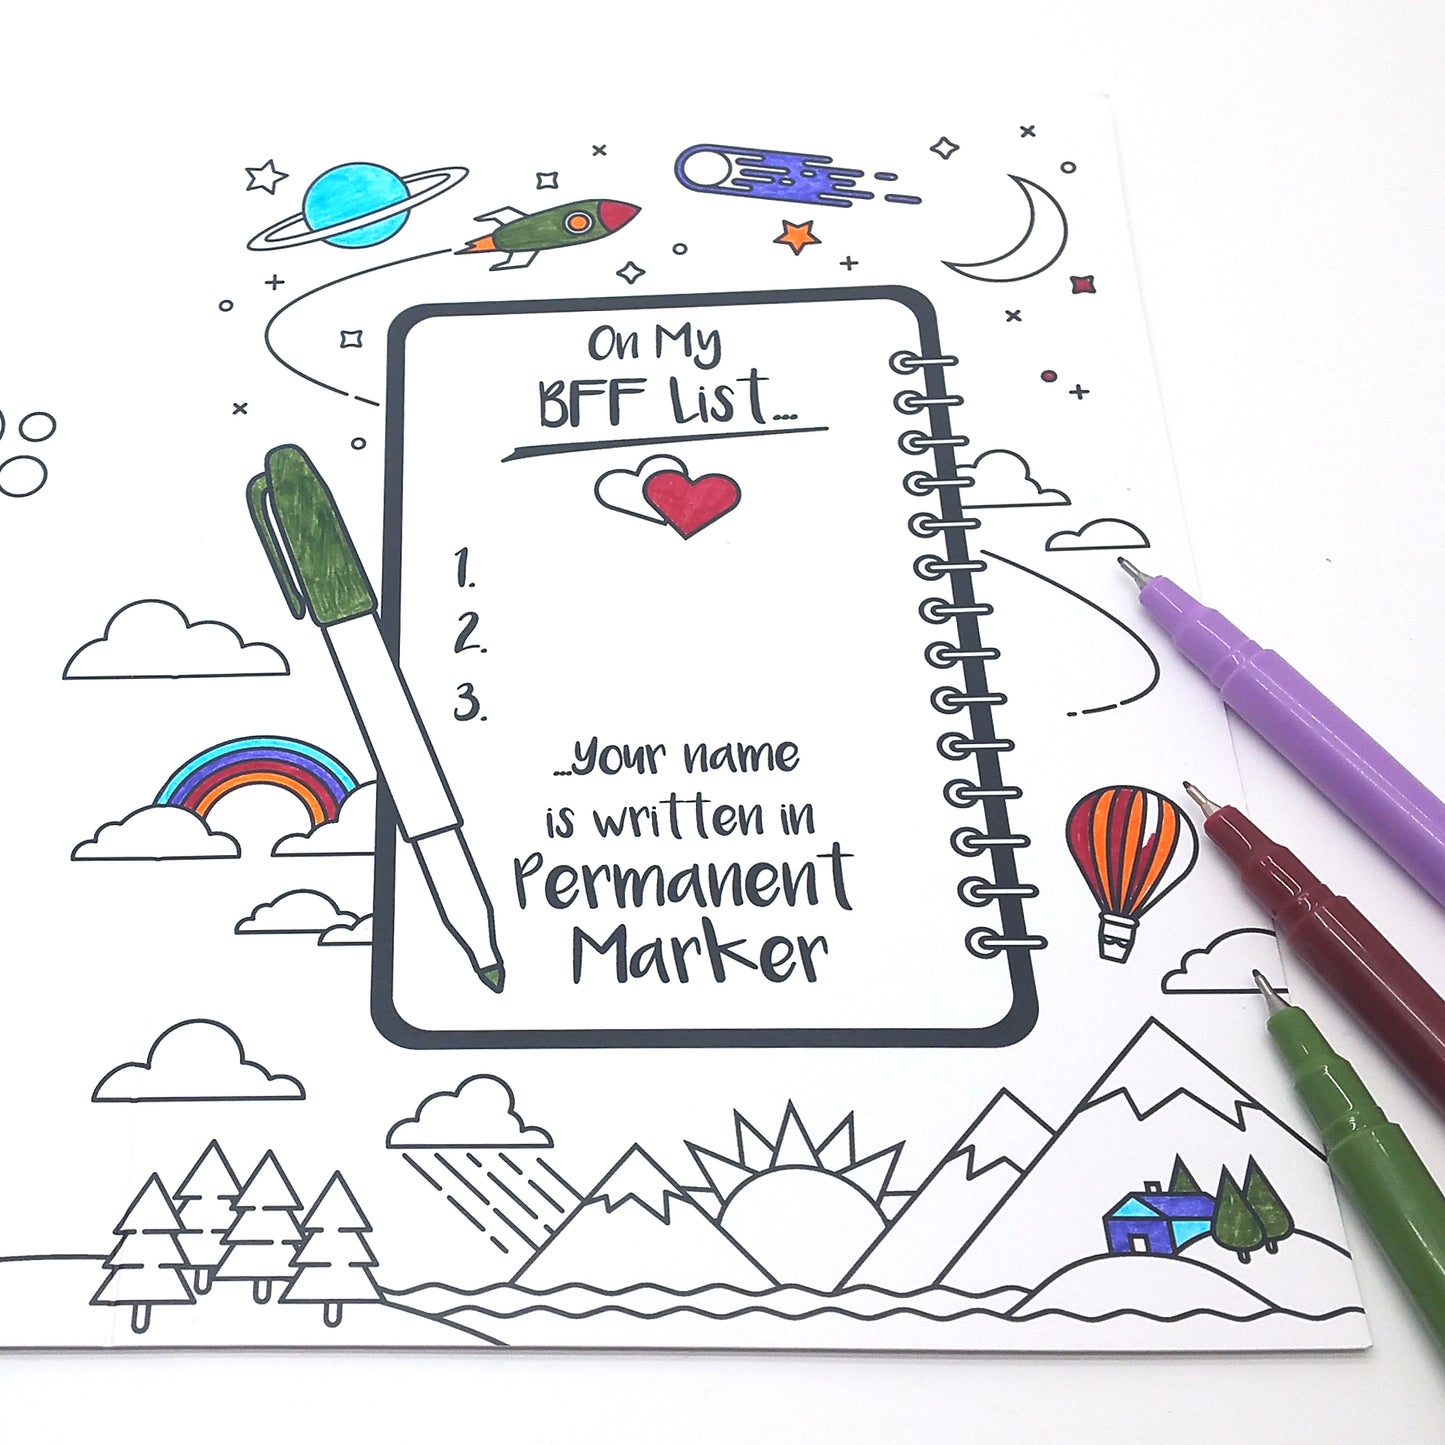 On My
BFF List...
1.
2.
3.
...your name
is written in
Permanent
Marker